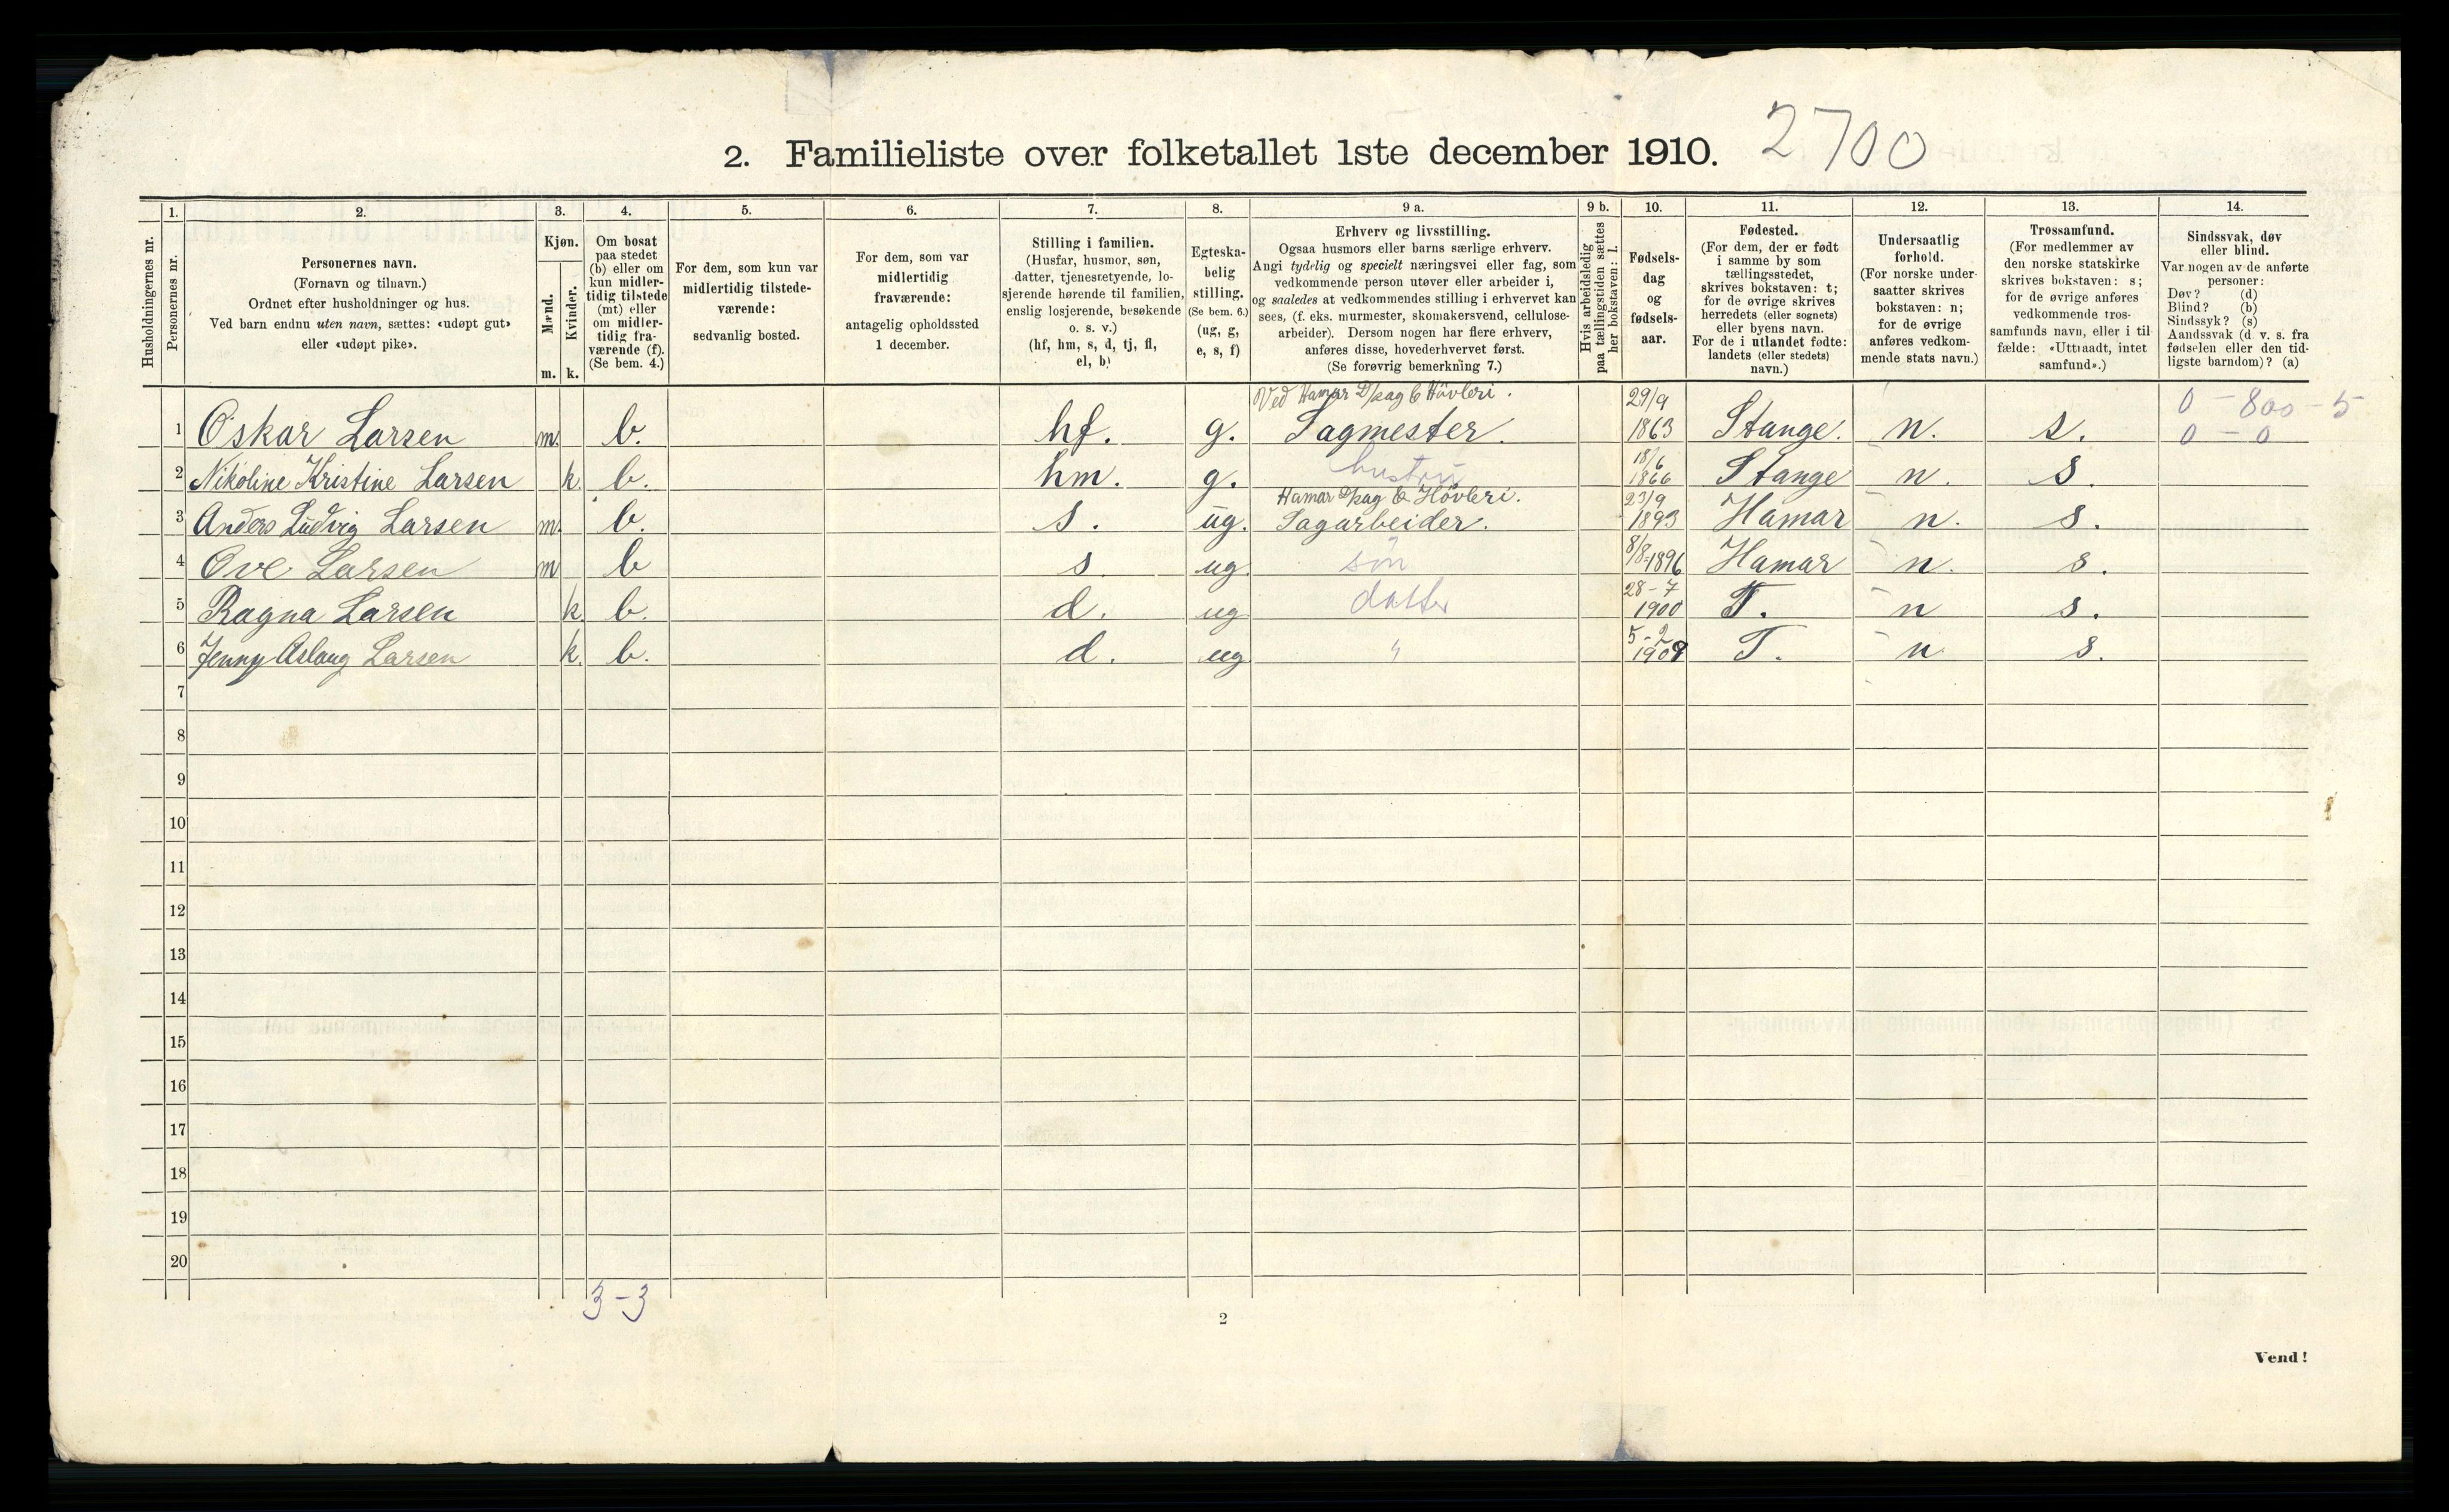 2. Familieliste over folketallet 1ste december 1910. 2700
Husholdningernes nr.
1.
Personernes nr.
2.
Personernes navn.
(Fornavn og tilnavn.)
Ordnet efter husholdninger og hus.
Ved barn endnu uten navn, sættes: «udøpt gut»
eller «udøpt pike».
3.
Kjøn.
Mænd.
Kvinder.
m. k.
4.
Om bosat
paa stedet
(b) eller om
kun midler-
tidig tilstede
(mt) eller
om midler-
tidig fra-
værende (f).
(Se bem. 4.)
5.
For dem, som kun var
midlertidig tilstede-
værende:
sedvanlig bosted.
6.
For dem, som var
midlertidig
fraværende:
antagelig opholdssted
1 december.
7.
Stilling i familien.
(Husfar, husmor, søn,
datter, tjenestetyende, lo-
sjerende hørende til familien,
enslig losjerende, besøkende
o. s. v.)
(hf, hm, s, d, tj, fl,
el, b)
8.
Egteska-
belig
stilling.
(Se bem. 6.)
(ug, g,
e, s, f)
9 a.
Erhverv og livsstilling.
Ogsaa husmors eller barns særlige erhverv.
Angi tydelig og specielt næringsvei eller fag, som
vedkommende person utøver eller arbeider i,
og saaledes at vedkommendes stilling i erhvervet kan
sees, (f. eks. murmester, skomakersvend, cellulose-
arbeider). Dersom nogen har flere erhverv,
anføres disse, hovederhvervet først.
(Se forøvrig bemerkning 7.)
9 b.
Hvis arbeidsledig
paa tællingstiden sættes
her bokstaven: l.
10.
Fødsels-
dag
og
fødsels-
aar.
11.
Fødested.
(For dem, der er født
i samme by som
tællingsstedet,
skrives bokstaven: t;
for de øvrige skrives
herredets (eller sognets)
eller byens navn.
For de i utlandet fødte:
landets (eller stedets)
navn.)
12.
Undersaatlig
forhold.
(For norske under-
saatter skrives
bokstaven: n;
for de øvrige
anføres vedkom-
mende stats navn.)
13.
Trossamfund.
(For medlemmer av
den norske statskirke
skrives bokstaven: s;
for de øvrige anføres
vedkommende tros-
samfunds navn, eller i til-
fælde: «Uttraadt, intet
samfund».)
14.
Sindssvak, døv
eller blind.
Var nogen av de anførte
personer:
Døv? (d)
Blind? (b)
Sindssyk? (s)
Aandssvak (d. v. s. fra
fødselen eller den tid-
ligste barndom)? (a)
Ved Hamar D/sag & Hövleri. 29/9 0 - 800 - 5
1 Oskar Larsen m. b. hf. g. Sagmester. 1863 Stange. n. s. 0 - 0
hustru 18/6
2 Nikoline Kristine Larsen k. b. hm. g. 1866 Stange n. s.
Hamar D/sag & Hövleri. 23/9
3 Anders Ludvig Larsen m. b. s. ug. Sagarbeider. 1893 Hamar n. s.
4 Ove Larsen m b s. ug. sön 8/8-1896 Hamar n. s.
28-7
5 Ragna Larsen k. b. d. ug datter 1900 T. n s.
5-2
6 Jenny Aslaug Larsen k. b. d. ug " 1909 T. n s.
7
8
9
10
11
12
13
14
15
16
17
18
19
20
3-3
2
Vend!